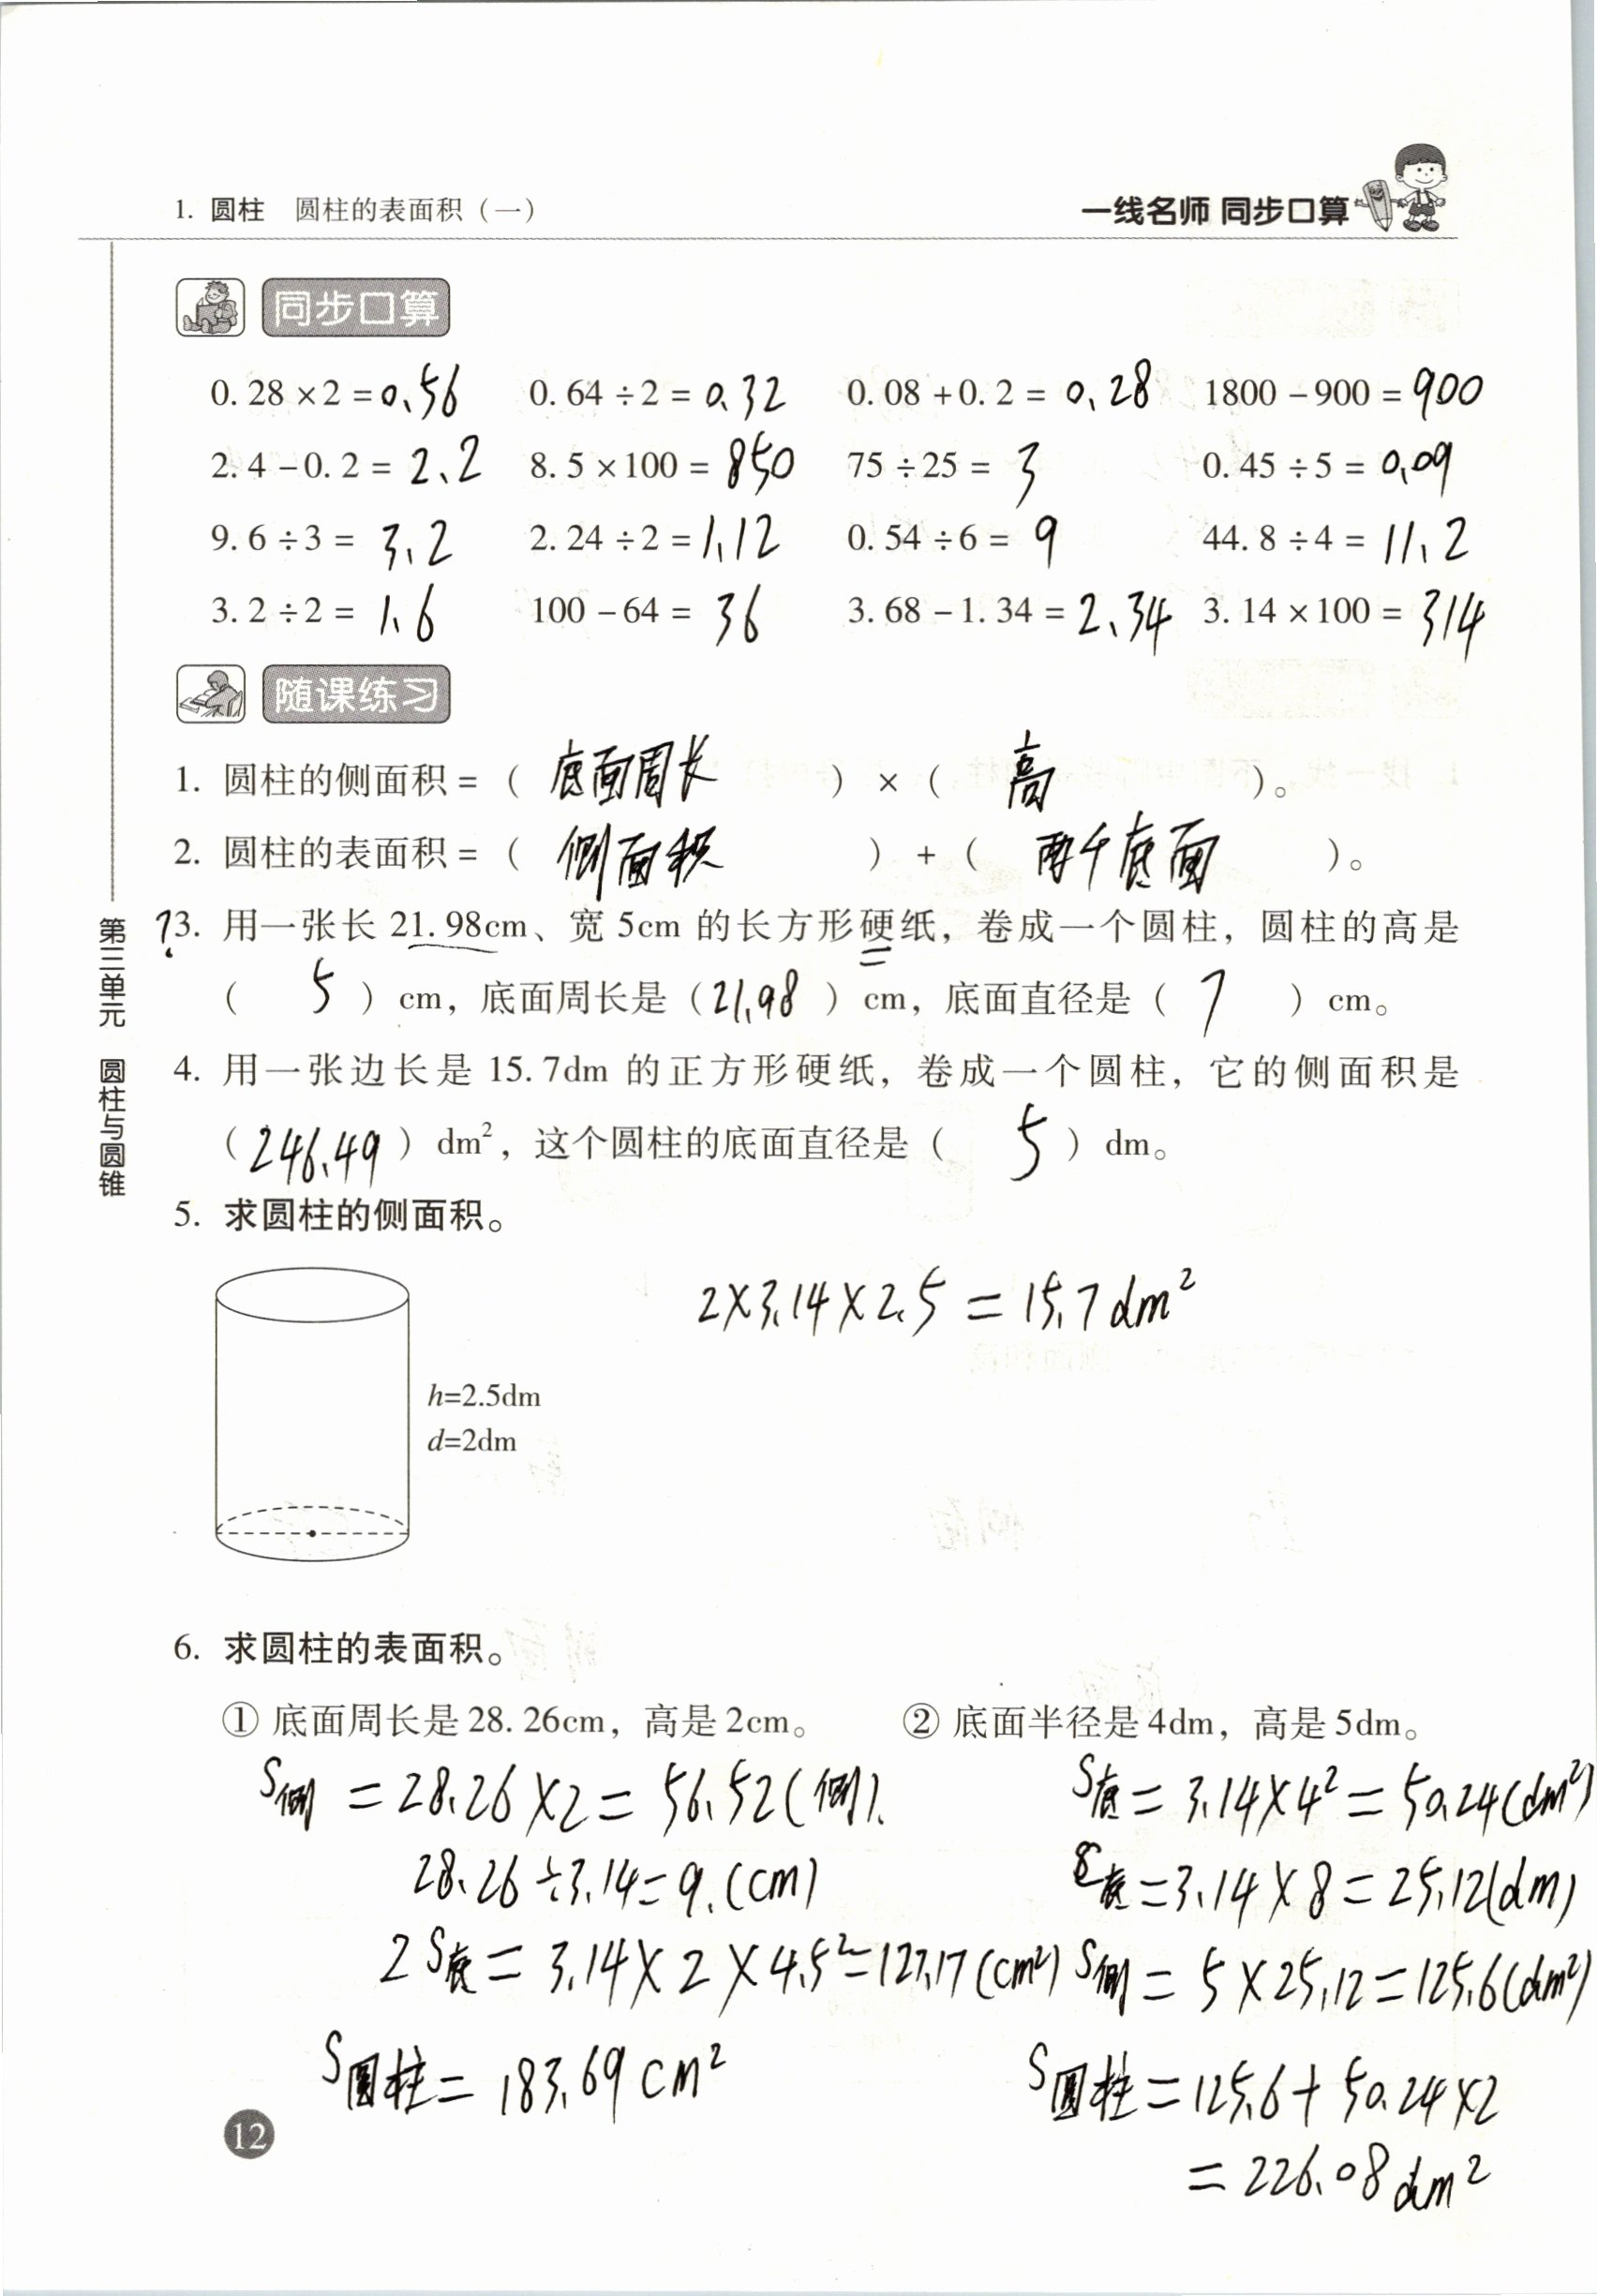 1. 圆柱 圆柱的表面积(一)
一线名师 同步口算
同步口算
0.28×2=0.56 0.64÷2=0.32 0.08+0.2=0.28 1800-900=900
2.4-0.2=2.2 8.5×100=850 75÷25=3 0.45÷5=0.09
9.6÷3=3.2 2.24÷2=1.12 0.54÷6=9 44.8÷4=11.2
3.2÷2=1.6 100-64=36 3.68-1.34=2.34 3.14×100=314
随课练习
1. 圆柱的侧面积=(底面周长)×(高)。
2. 圆柱的表面积=(侧面积)+(两个底面)。
?3. 用一张长21.98cm、宽5cm的长方形硬纸,卷成一个圆柱,圆柱的高是
(5)cm,底面周长是(21.98)cm,底面直径是(7)cm。
4. 用一张边长是15.7dm的正方形硬纸,卷成一个圆柱,它的侧面积是
(246.49)dm²,这个圆柱的底面直径是(5)dm。
5. 求圆柱的侧面积。
2×3.14×2.5=15.7dm²
h=2.5dm
d=2dm
6. 求圆柱的表面积。
① 底面周长是28.26cm,高是2cm。 ② 底面半径是4dm,高是5dm。
S侧=28.26×2=56.52(侧). S底=3.14×4²=50.24(dm²)
28.26÷3.14=9.(cm) C底=3.14×8=25.12(dm)
2S底=3.14×2×4.5²=127.17(cm²) S侧=5×25.12=125.6(dm²)
S圆柱=183.69cm² S圆柱=125.6+50.24×2
=226.08dm²
第三单元 圆柱与圆锥
12